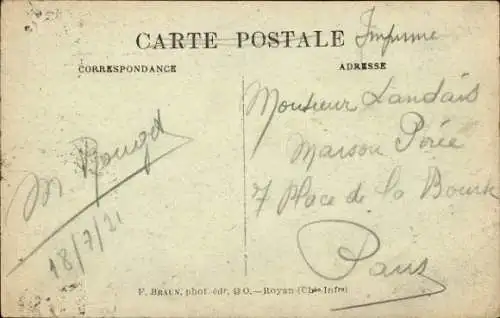 CARTE POSTALE Imprimé
CORRESPONDANCE
ADRESSE
Monsieur Landais
Maison Porée
7 Place de la Bourse
Paris
M Rouget
18/7/21
F. BRAUN, phot. édr, 49 O.—Royan (Chte Infre)